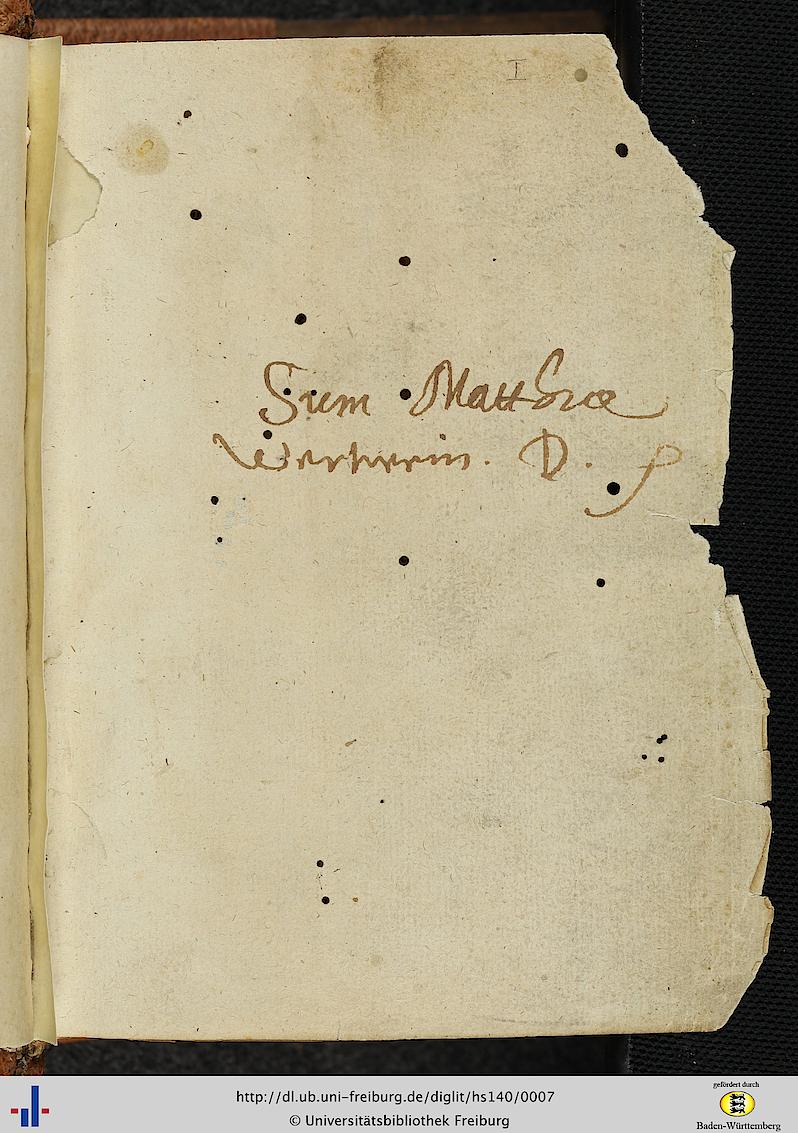 I
Sum Matthiæ
D.
http://dl.ub.uni-freiburg.de/diglit/hs140/0007
© Universitätsbibliothek Freiburg
gefördert durch
Baden-Württemberg